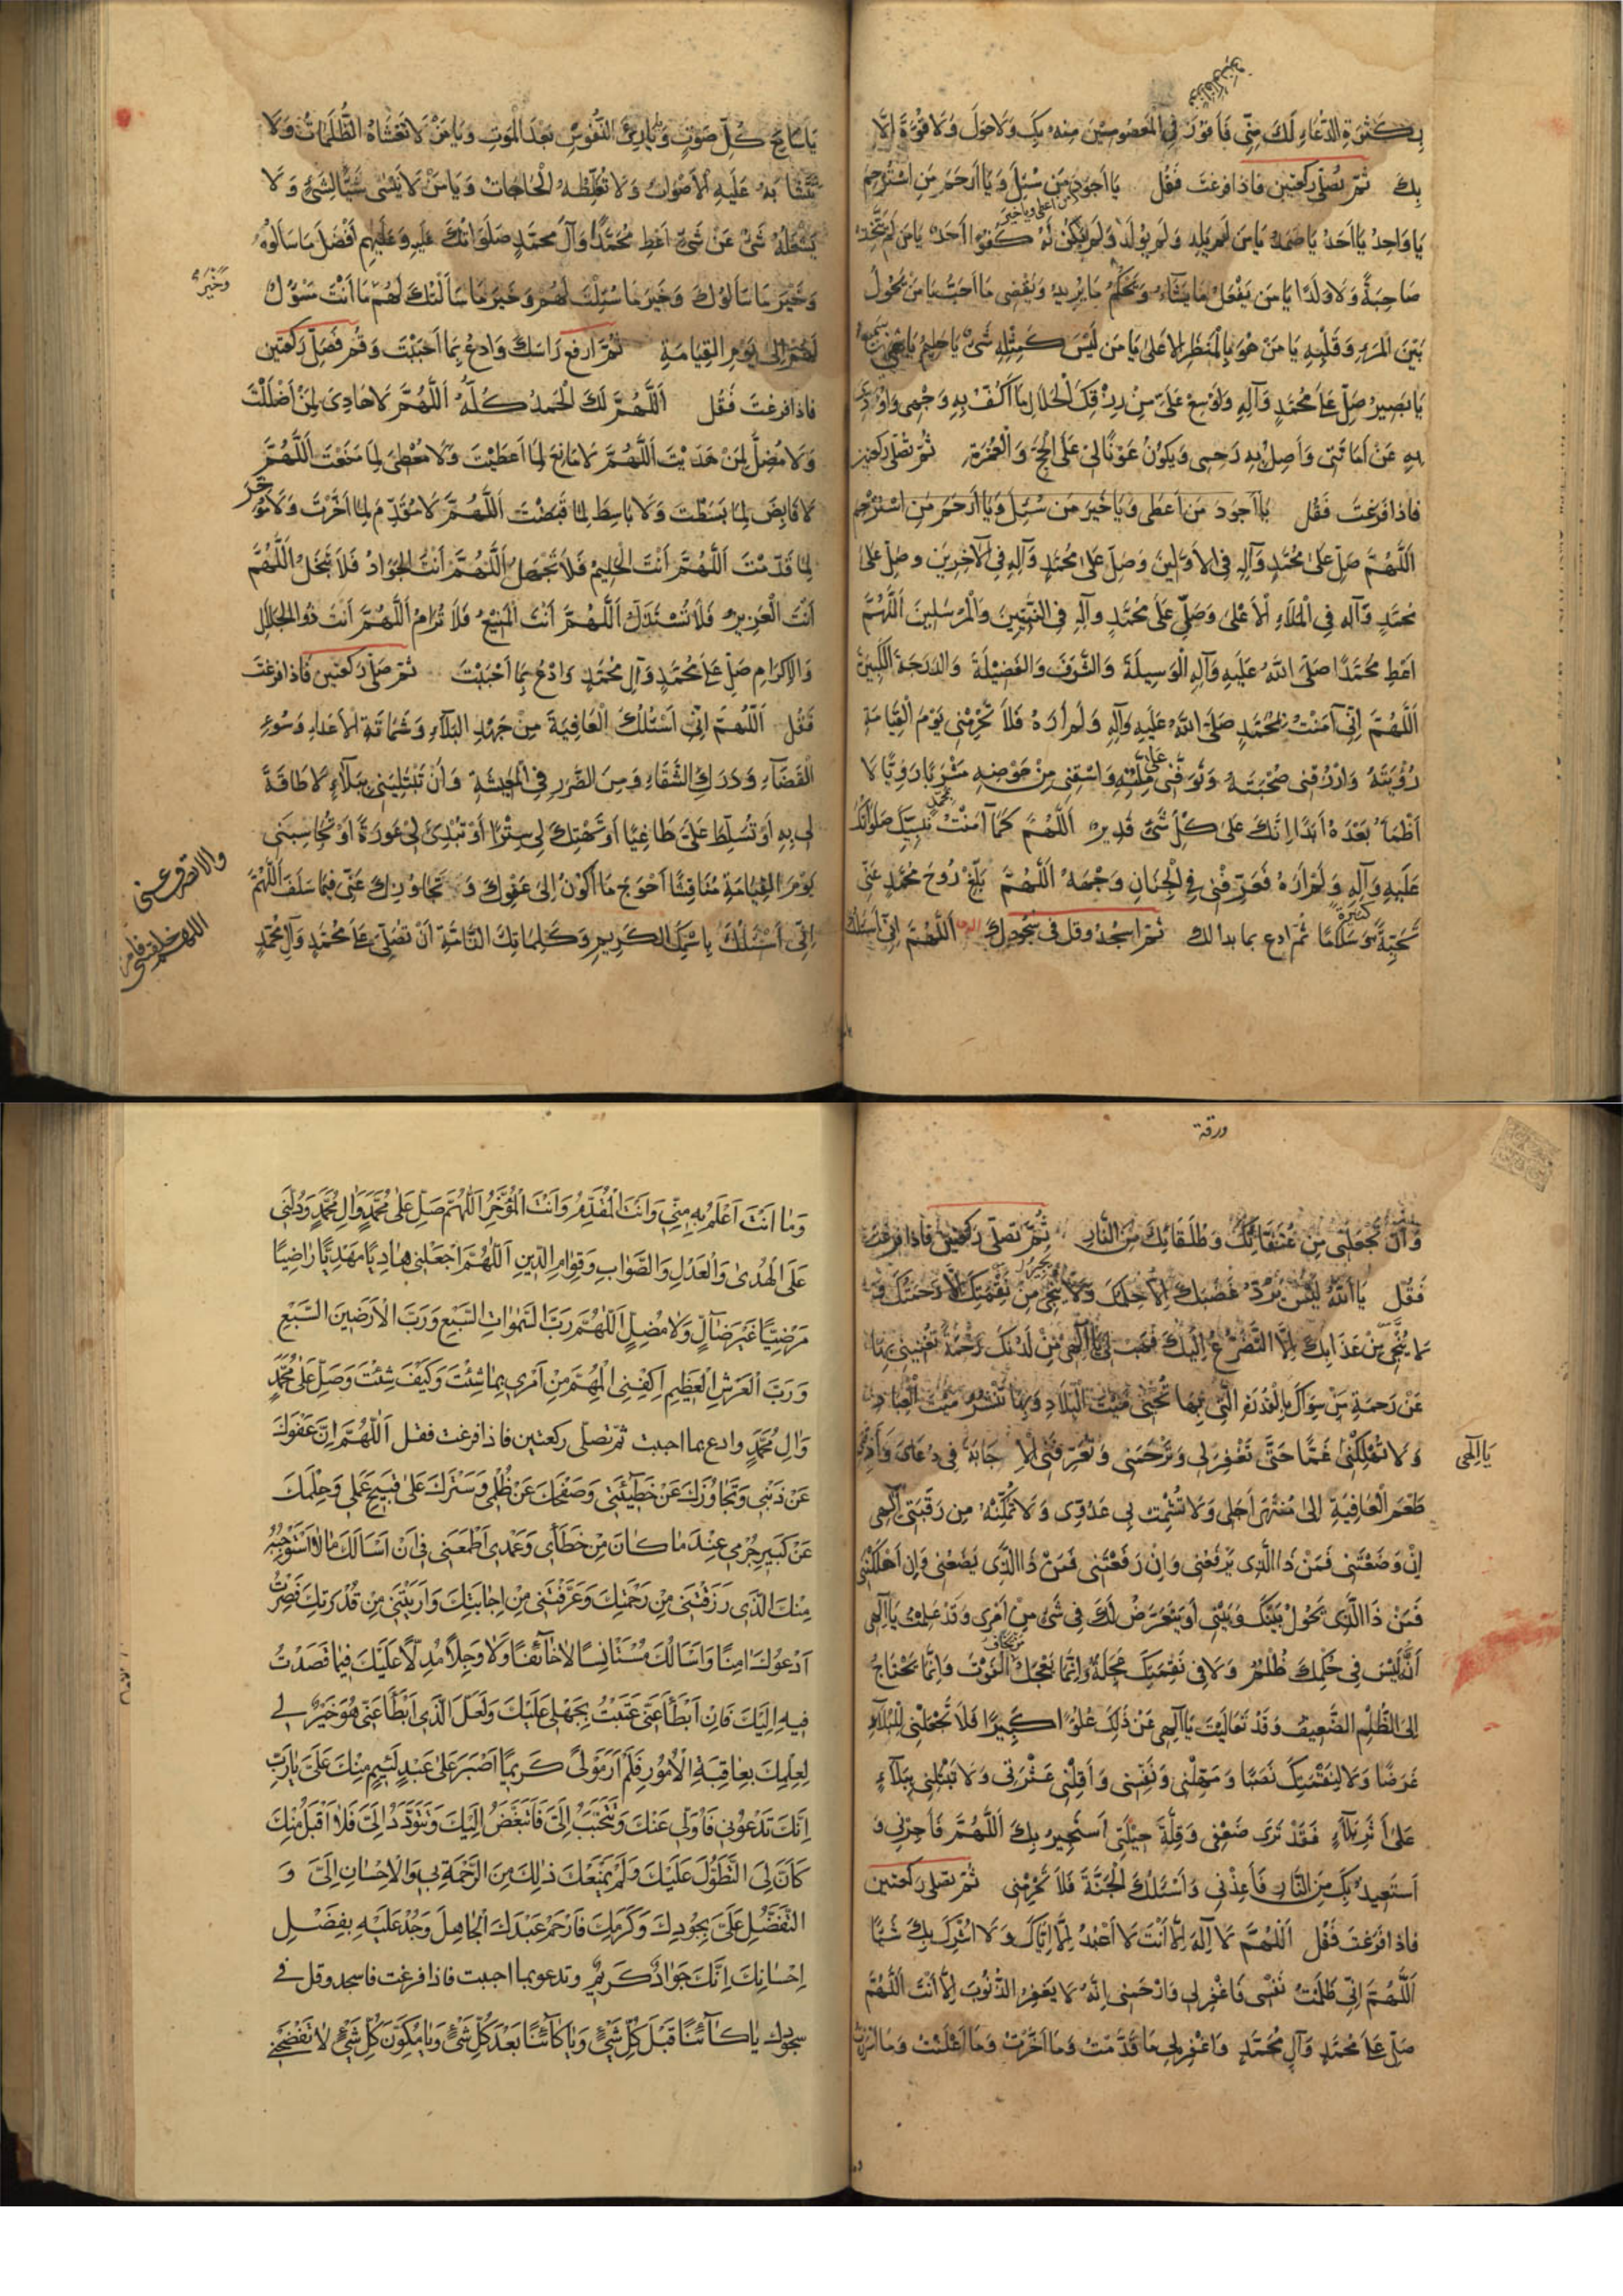 بِكَثْرَةِ الدُّعَاءِ لَكَ مِنِّي فَأَفُوزَ فِي الْمَعْصُومِينَ مِنْهُ بِكَ وَلَا حَوْلَ وَلَا قُوَّةَ إِلَّا
بِكَ ثُمَّ تُصَلِّي رَكْعَتَيْنِ فَاذَا فَرَغْتَ فَقُلْ يَا أَجْوَدَ مَنْ سُئِلَ وَيَا أَرْحَمَ مَنِ اسْتُرْحِمَ
يَا وَاحِدُ يَا أَحَدُ يَا صَمَدُ يَا مَنْ لَمْ يَلِدْ وَلَمْ يُولَدْ وَلَمْ يَكُنْ لَهُ كُفُوًا أَحَدٌ يَا مَنْ لَمْ يَتَّخِذْ
صَاحِبَةً وَلَا وَلَدًا يَا مَنْ يَفْعَلُ مَا يَشَاءُ وَيَحْكُمُ مَا يُرِيدُ وَيَقْضِي مَا أَحَبَّ يَا مَنْ يَحُولُ
بَيْنَ الْمَرْءِ وَقَلْبِهِ يَا مَنْ هُوَ بِالْمَنْظَرِ الْأَعْلَى يَا مَنْ لَيْسَ كَمِثْلِهِ شَيْءٌ يَا حَلِيمُ يَا سَمِيعُ
يَا بَصِيرُ صَلِّ عَلَى مُحَمَّدٍ وَآلِهِ وَأَوْسِعْ عَلَيَّ مِنْ رِزْقِكَ الْحَلَالِ مَا أَكُفُّ بِهِ وَجْهِي وَأُؤَدِّي
بِهِ عَنْ أَمَانَتِي وَأَصِلُ بِهِ رَحِمِي وَيَكُونُ عَوْنًا لِي عَلَى الْحَجِّ وَالْعُمْرَةِ ثُمَّ تُصَلِّي رَكْعَتَيْنِ
فَاذَا فَرَغْتَ فَقُلْ يَا أَجْوَدَ مَنْ أَعْطَى وَيَا خَيْرَ مَنْ سُئِلَ وَيَا أَرْحَمَ مَنِ اسْتُرْحِمَ
اللَّهُمَّ صَلِّ عَلَى مُحَمَّدٍ وَآلِهِ فِي الْأَوَّلِينَ وَصَلِّ عَلَى مُحَمَّدٍ وَآلِهِ فِي الْآخِرِينَ وَصَلِّ عَلَى
مُحَمَّدٍ وَآلِهِ فِي الْمَلَاءِ الْأَعْلَى وَصَلِّ عَلَى مُحَمَّدٍ وَآلِهِ فِي النَّبِيِّينَ وَالْمُرْسَلِينَ اللَّهُمَّ
اعْطِ مُحَمَّدًا صَلَّى اللَّهُ عَلَيْهِ وَآلِهِ الْوَسِيلَةَ وَالشَّرَفَ وَالْفَضِيلَةَ وَالدَّرَجَةَ الْكَبِيرَةَ
اللَّهُمَّ إِنِّي آمَنْتُ بِمُحَمَّدٍ صَلَّى اللَّهُ عَلَيْهِ وَآلِهِ وَلَمْ أَرَهُ فَلَا تَحْرِمْنِي يَوْمَ الْقِيَامَةِ
رُؤْيَتَهُ وَارْزُقْنِي صُحْبَتَهُ وَتَوَفَّنِي عَلَى مِلَّتِهِ وَاسْقِنِي مِنْ حَوْضِهِ مَشْرَبًا رَوِيًّا لَا
أَظْمَأُ بَعْدَهُ أَبَدًا إِنَّكَ عَلَى كُلِّ شَيْءٍ قَدِيرٌ اللَّهُمَّ كَمَا آمَنْتُ بِنَبِيِّكَ مُحَمَّدٍ صَلَوَاتُكَ
عَلَيْهِ وَآلِهِ وَلَمْ أَرَهُ فَعَرِّفْنِي فِي الْجِنَانِ وَجْهَهُ اللَّهُمَّ بَلِّغْ رُوحَ مُحَمَّدٍ عَنِّي
تَحِيَّةً كَثِيرَةً وَسَلَامًا ثُمَّ ادع بما بدا لك ثُمَّ اسْجُدْ وقل في سجودك اللَّهُمَّ إِنِّي أَسْئَلُكَ
يَا سَامِعَ كُلِّ صَوْتٍ وَيَا بَارِئَ النُّفُوسِ بَعْدَ الْمَوْتِ وَيَا مَنْ لَا تَغْشَاهُ الظُّلُمَاتُ وَلَا
تَتَشَابَهُ عَلَيْهِ الْأَصْوَاتُ وَلَا تُغَلِّطُهُ الْحَاجَاتُ وَيَا مَنْ لَا يَنْسَى شَيْئًا لِشَيْءٍ وَلَا
يَشْغَلُهُ شَيْءٌ عَنْ شَيْءٍ اعْطِ مُحَمَّدًا وَآلَ مُحَمَّدٍ صَلَوَاتُكَ عَلَيْهِ وَعَلَيْهِمْ أَفْضَلَ مَا سَأَلُوا
وَخَيْرَ مَا سَأَلُوكَ وَخَيْرَ مَا سُئِلْتَ لَهُمْ وَخَيْرَ مَا سَأَلْتُكَ لَهُمْ مَا أَنْتَ مَسْؤُلٌ
لَهُمْ إِلَى يَوْمِ الْقِيَامَةِ ثُمَّ ارفع رَاسَكَ وَادْعُ بِمَا أَحْبَبْتَ وَقُمْ فَصَلِّ رَكْعَتَيْنِ
فَاذَا فَرَغْتَ فَقُلْ اللَّهُمَّ لَكَ الْحَمْدُ كُلُّهُ اللَّهُمَّ لَا هَادِيَ لِمَنْ أَضْلَلْتَ
وَلَا مُضِلَّ لِمَنْ هَدَيْتَ اللَّهُمَّ لَا مَانِعَ لِمَا أَعْطَيْتَ وَلَا مُعْطِيَ لِمَا مَنَعْتَ اللَّهُمَّ
لَا قَابِضَ لِمَا بَسَطْتَ وَلَا بَاسِطَ لِمَا قَبَضْتَ اللَّهُمَّ لَا مُقَدِّمَ لِمَا أَخَّرْتَ وَلَا مُؤَخِّرَ
لِمَا قَدَّمْتَ اللَّهُمَّ أَنْتَ الْحَلِيمُ فَلَا تَجْهَلُ اللَّهُمَّ أَنْتَ الْجَوَادُ فَلَا تَبْخَلُ اللَّهُمَّ
أَنْتَ الْعَزِيزُ فَلَا تُسْتَذَلُّ اللَّهُمَّ أَنْتَ الْمَنِيعُ فَلَا تُرَامُ اللَّهُمَّ أَنْتَ ذُو الْجَلَالِ
وَالْإِكْرَامِ صَلِّ عَلَى مُحَمَّدٍ وَآلِ مُحَمَّدٍ وَادْعُ بِمَا أَحْبَبْتَ ثُمَّ صَلِّ رَكْعَتَيْنِ فَاذَا فَرَغْتَ
فَقُلْ اللَّهُمَّ إِنِّي أَسْئَلُكَ الْعَافِيَةَ مِنْ جَهْدِ الْبَلَاءِ وَشَمَاتَةِ الْأَعْدَاءِ وَسُوءِ
الْقَضَاءِ وَدَرَكِ الشَّقَاءِ وَمِنَ الضَّرَرِ فِي الْمَعِيشَةِ وَأَنْ تَبْتَلِيَنِي بِبَلَاءٍ لَا طَاقَةَ
لِي بِهِ أَوْ تُسَلِّطَ عَلَيَّ طَاغِيًا أَوْ تَهْتِكَ لِي سِتْرًا أَوْ تُبْدِيَ لِي عَوْرَةً أَوْ تُحَاسِبَنِي
يَوْمَ الْقِيَامَةِ مُنَاقِشًا أَحْوَجَ مَا أَكُونُ إِلَى عَفْوِكَ وَتَجَاوُزِكَ عَنِّي فِيمَا سَلَفَ اللَّهُمَّ
إِنِّي أَسْئَلُكَ بِاسْمِكَ الْكَرِيمِ وَكَلِمَاتِكَ التَّامَّةِ أَنْ تُصَلِّيَ عَلَى مُحَمَّدٍ وَآلِ مُحَمَّدٍ
ورقة
وَأَنْ تَجْعَلَنِي مِنْ عُتَقَائِكَ وَطُلَقَائِكَ مِنَ النَّارِ ثُمَّ تُصَلِّي رَكْعَتَيْنِ فَاذَا فَرَغْتَ
فَقُلْ يَا اللَّهُ لَيْسَ يَرُدُّ غَضَبَكَ إِلَّا حِلْمُكَ وَلَا يُنْجِي مِنْ نِقْمَتِكَ إِلَّا رَحْمَتُكَ وَ
لَا يُنْجِي مِنْ عَذَابِكَ إِلَّا التَّضَرُّعُ إِلَيْكَ فَهَبْ لِي يَا إِلَهِي مِنْ لَدُنْكَ رَحْمَةً تُغْنِينِي بِهَا
عَنْ رَحْمَةِ مَنْ سِوَاكَ بِالْقُدْرَةِ الَّتِي بِهَا تُحْيِي مَيْتَ الْبِلَادِ وَبِهَا تَنْشُرُ مَيْتَ الْعِبَادِ
وَلَا تُهْلِكْنِي غَمًّا حَتَّى تَغْفِرَ لِي وَتَرْحَمَنِي وَتُعَرِّفَنِي الْإِجَابَةَ فِي دُعَائِي وَأَذِقْنِي
يَا إِلَهِي
طَعْمَ الْعَافِيَةِ إِلَى مُنْتَهَى أَجَلِي وَلَا تُشْمِتْ بِي عَدُوِّي وَلَا تُمَكِّنْهُ مِنْ رَقَبَتِي إِلَهِي
إِنْ وَضَعْتَنِي فَمَنْ ذَا الَّذِي يَرْفَعُنِي وَإِنْ رَفَعْتَنِي فَمَنْ ذَا الَّذِي يَضَعُنِي وَإِنْ أَهْلَكْتَنِي
فَمَنْ ذَا الَّذِي يَحُولُ بَيْنَكَ وَبَيْنِي أَوْ يَتَعَرَّضُ لَكَ فِي شَيْءٍ مِنْ أَمْرِي وَقَدْ عَلِمْتُ يَا إِلَهِي
أَنَّهُ لَيْسَ فِي حُكْمِكَ ظُلْمٌ وَلَا فِي نَقِمَتِكَ عَجَلَةٌ وَإِنَّمَا يَعْجَلُ مَنْ يَخَافُ الْفَوْتَ وَإِنَّمَا يَحْتَاجُ
إِلَى الظُّلْمِ الضَّعِيفُ وَقَدْ تَعَالَيْتَ يَا إِلَهِي عَنْ ذَلِكَ عُلُوًّا كَبِيرًا فَلَا تَجْعَلْنِي لِلْبَلَاءِ
غَرَضًا وَلَا لِنَقِمَتِكَ نَصَبًا وَمَهِّلْنِي وَنَفِّسْنِي وَأَقِلْنِي عَثْرَتِي وَلَا تَبْتَلِنِي بِبَلَاءٍ
عَلَى أَثَرِ بَلَاءٍ فَقَدْ تَرَى ضَعْفِي وَقِلَّةَ حِيلَتِي أَسْتَجِيرُ بِكَ اللَّهُمَّ فَأَجِرْنِي وَ
أَسْتَعِيذُ بِكَ مِنَ النَّارِ فَأَعِذْنِي وَأَسْئَلُكَ الْجَنَّةَ فَلَا تَحْرِمْنِي ثُمَّ تصلي رَكْعَتَيْنِ
فَاذَا فَرَغْتَ فَقُلْ اللَّهُمَّ لَا إِلَهَ إِلَّا أَنْتَ لَا أَعْبُدُ إِلَّا إِيَّاكَ وَلَا أُشْرِكُ بِكَ شَيْئًا
اللَّهُمَّ إِنِّي ظَلَمْتُ نَفْسِي فَاغْفِرْ لِي وَارْحَمْنِي إِنَّهُ لَا يَغْفِرُ الذُّنُوبَ إِلَّا أَنْتَ اللَّهُمَّ
صَلِّ عَلَى مُحَمَّدٍ وَآلِ مُحَمَّدٍ وَاغْفِرْ لِي مَا قَدَّمْتُ وَمَا أَخَّرْتُ وَمَا أَعْلَنْتُ وَمَا أَسْرَرْتُ
وَمَا أَنْتَ أَعْلَمُ بِهِ مِنِّي وَأَنْتَ الْمُقَدِّمُ وَأَنْتَ الْمُؤَخِّرُ اللَّهُمَّ صَلِّ عَلَى مُحَمَّدٍ وَالِ مُحَمَّدٍ وَدُلَّنِي
عَلَى الْهُدَى وَالْعَدْلِ وَالصَّوَابِ وَقِوَامِ الدِّينِ اللَّهُمَّ اجْعَلْنِي هَادِيًا مَهْدِيًّا رَاضِيًا
مَرْضِيًّا غَيْرَ ضَالٍّ وَلَا مُضِلٍّ اللَّهُمَّ رَبَّ السَّمَوَاتِ السَّبْعِ وَرَبَّ الْأَرَضِينَ السَّبْعِ
وَرَبَّ الْعَرْشِ الْعَظِيمِ اكْفِنِي الْمُهِمَّ مِنْ أَمْرِي بِمَا شِئْتَ وَكَيْفَ شِئْتَ وَصَلِّ عَلَى مُحَمَّدٍ
وَالِ مُحَمَّدٍ وادع بما احببت ثُمَّ تصلّى ركعتين فاذا فرغت فقل اللَّهُمَّ إِنَّ عَفْوَكَ
عَنْ ذَنْبِي وَتَجَاوُزَكَ عَنْ خَطِيئَتِي وَصَفْحَكَ عَنْ ظُلْمِي وَسَتْرَكَ عَلَى قَبِيحِ عَمَلِي وَحِلْمَكَ
عَنْ كَبِيرِ جُرْمِي عِنْدَ مَا كَانَ مِنْ خَطَأِي وَعَمْدِي أَطْمَعَنِي فِي أَنْ أَسْأَلَكَ مَا لَا أَسْتَوْجِبُهُ
مِنْكَ الَّذِي رَزَقْتَنِي مِنْ رَحْمَتِكَ وَعَرَّفْتَنِي مِنْ إِجَابَتِكَ وَأَرَيْتَنِي مِنْ قُدْرَتِكَ فَصِرْتُ
أَدْعُوكَ امِنًا وَأَسْأَلُكَ مُسْتَأْنِسًا لَا خَائِفًا وَلَا وَجِلًا مُدِلًّا عَلَيْكَ فِيمَا قَصَدْتُ
فِيهِ إِلَيْكَ فَإِنْ أَبْطَأَ عَنِّي عَتَبْتُ بِجَهْلِي عَلَيْكَ وَلَعَلَّ الَّذِي أَبْطَأَ عَنِّي هُوَ خَيْرٌ لِي
لِعِلْمِكَ بِعَاقِبَةِ الْأُمُورِ فَلَمْ أَرَ مَوْلًى كَرِيمًا أَصْبَرَ عَلَى عَبْدٍ لَئِيمٍ مِنْكَ عَلَيَّ يَا رَبِّ
إِنَّكَ تَدْعُونِي فَأُوَلِّي عَنْكَ وَتَتَحَبَّبُ إِلَيَّ فَأَتَبَغَّضُ إِلَيْكَ وَتَتَوَدَّدُ إِلَيَّ فَلَا أَقْبَلُ مِنْكَ
كَأَنَّ لِيَ التَّطَوُّلَ عَلَيْكَ وَلَمْ يَمْنَعْكَ ذَلِكَ مِنَ الرَّحْمَةِ بِي وَالْإِحْسَانِ إِلَيَّ وَ
التَّفَضُّلِ عَلَيَّ بِجُودِكَ وَكَرَمِكَ فَارْحَمْ عَبْدَكَ الْجَاهِلَ وَجُدْ عَلَيْهِ بِفَضْلِ
إِحْسَانِكَ إِنَّكَ جَوَادٌ كَرِيمٌ وتدعو بما احببت فاذا فرغت فاسجد وقل في
سجودك يَا كَائِنًا قَبْلَ كُلِّ شَيْءٍ وَيَا كَائِنًا بَعْدَ كُلِّ شَيْءٍ وَيَا مُكَوِّنَ كُلِّ شَيْءٍ لَا تَفْضَحْنِي